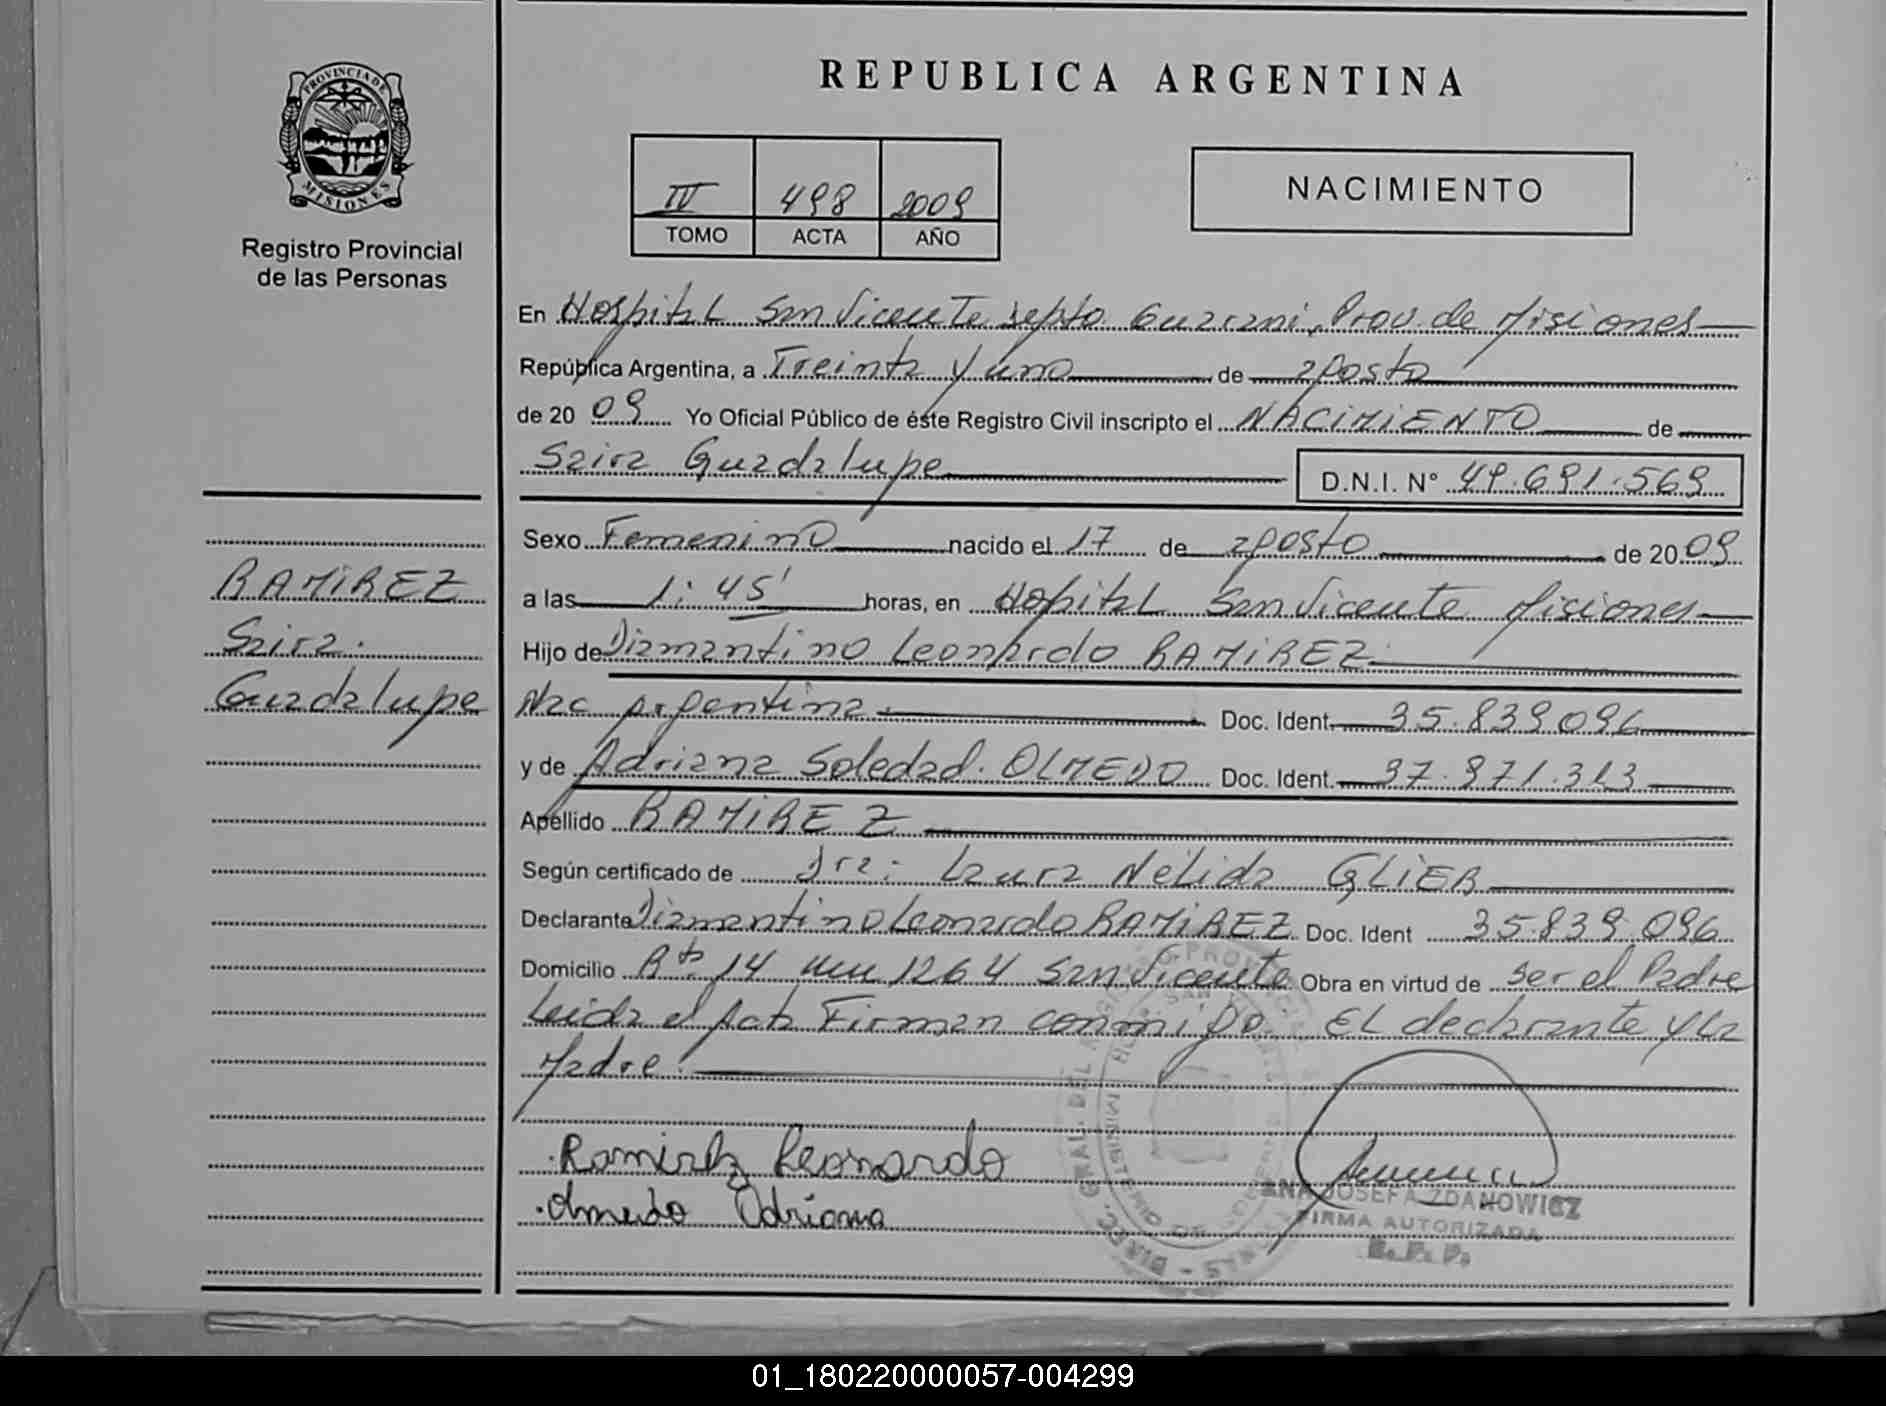 PROVINCIA DE
MISIONES
Registro Provincial
de las Personas
RAMIREZ
Saira.
Guadalupe
REPUBLICA ARGENTINA
III 498 2009
TOMO ACTA AÑO
NACIMIENTO
En Hospital San Vicente Depto Guarani, Prov. de Misiones
República Argentina, a Treinta y uno de agosto
de 20 09 Yo Oficial Público de éste Registro Civil inscripto el NACIMIENTO de
Saira Guadalupe D.N.I. N° 49.691.569
Sexo Femenino nacido el 17 de agosto de 20 09
a las 1:45' horas, en Hospital San Vicente Misiones
Hijo de Diamantino Leonardo RAMIREZ
Nac Argentina. Doc. Ident. 35.839.096
y de Adriana Soledad. OLMEDO Doc. Ident. 37.971.313
Apellido RAMIREZ
Según certificado de Dra: Laura Nélida GLIER
Declarante Diamantino Leonardo RAMIREZ Doc. Ident 35.839.096
Domicilio Rta 14 km 1264 San Vicente Obra en virtud de ser el Padre
Leida el Acta Firman conmigo. EL declarante y la
Madre.
Ramirez Leonardo
Olmedo Adriana
ANA JOSEFA ZDANOWICZ
FIRMA AUTORIZADA
R. P. P.
01_180220000057-004299